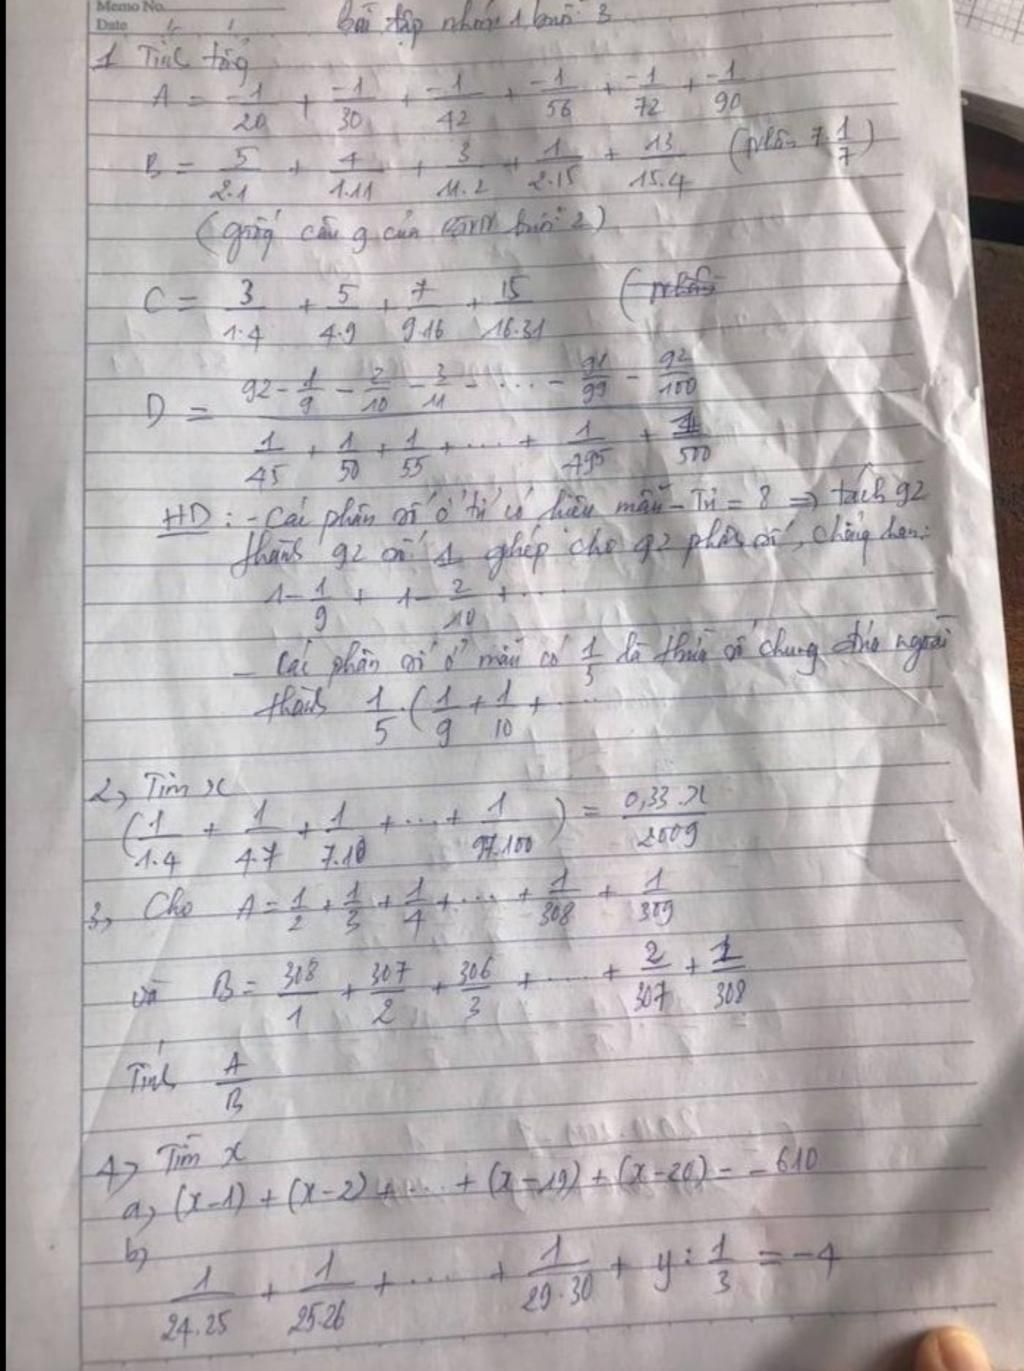 Memo No.
Date
bài tập nhóm 1 buổi 3
1 Tính tổng
A = -1/20 + -1/30 + -1/42 + -1/56 + -1/72 + -1/90
B = 5/2.1 + 4/1.11 + 3/11.2 + 1/2.15 + 13/15.4 (nhân 7.1/7)
(giống câu g của buổi 2)
C = 3/1.4 + 5/4.9 + 7/9.16 + 15/16.31
D = (92 - 1/9 - 2/10 - 3/11 - .... - 91/99 - 92/100) / (1/45 + 1/50 + 1/55 + .... + 1/495 + 1/500)
HD : - Các phân số ở tử có hiệu mẫu - Tử = 8 ⇒ tách 92
thành 92 số 1 ghép cho 92 phân số, chẳng hạn:
1 - 1/9 + 1 - 2/10 + ....
- Các phân số ở mẫu có 1/5 là thừa số chung đưa ngoài
thành 1/5 . (1/9 + 1/10 + ....
2, Tìm x
(1/1.4 + 1/4.7 + 1/7.10 + .... + 1/97.100) = 0,33.x/2009
3, Cho A = 1/2 + 1/3 + 1/4 + .... + 1/308 + 1/309
và B = 308/1 + 307/2 + 306/3 + .... + 2/307 + 1/308
Tính A/B
4, Tìm x
a, (x-1) + (x-2) + .... + (x-19) + (x-20) = -610
b, 1/24.25 + 1/25.26 + .... + 1/29.30 + y : 1/3 = -4